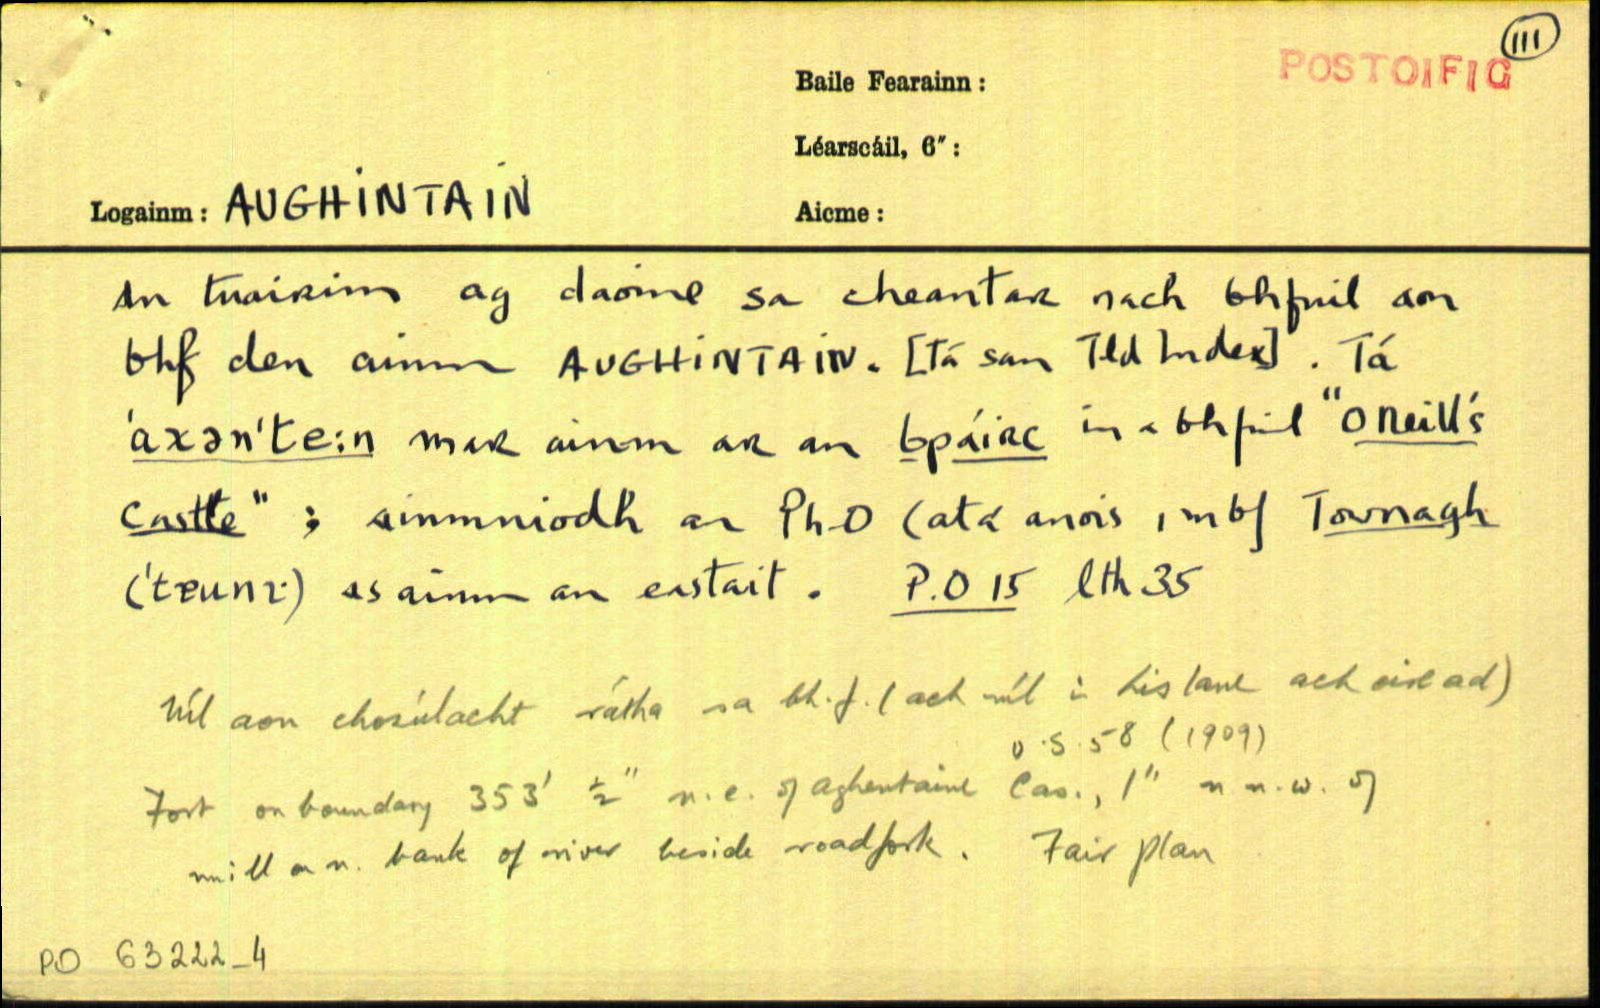 III
POSTOIFIG
Baile Fearainn :
Léarscáil, 6″ :
Logainm : AUGHINTAIN
Aicme :
An tuairim ag daoine sa cheantar nach bhfuil aon
bhf den ainm AUGHINTAIN. [Tá san Tld Index]. Tá
'axən'te:n mar ainm ar an bpáirc in a bhfuil "O Neill's
Castle" ; ainmníodh an Ph.O (atá anois i mbf Townagh
as ainm an eastait. P.O 15 lth 35
Níl aon chosúlacht rátha sa bh.f. (ach níl i his lane ach oiread)
O.S. 58 (1909)
Fort on boundary 353' ½" n.e. of Aghentaine Cas., 1" n n.w. of
mill on n. bank of river beside roadfork. Fair plan
PO 63222_4